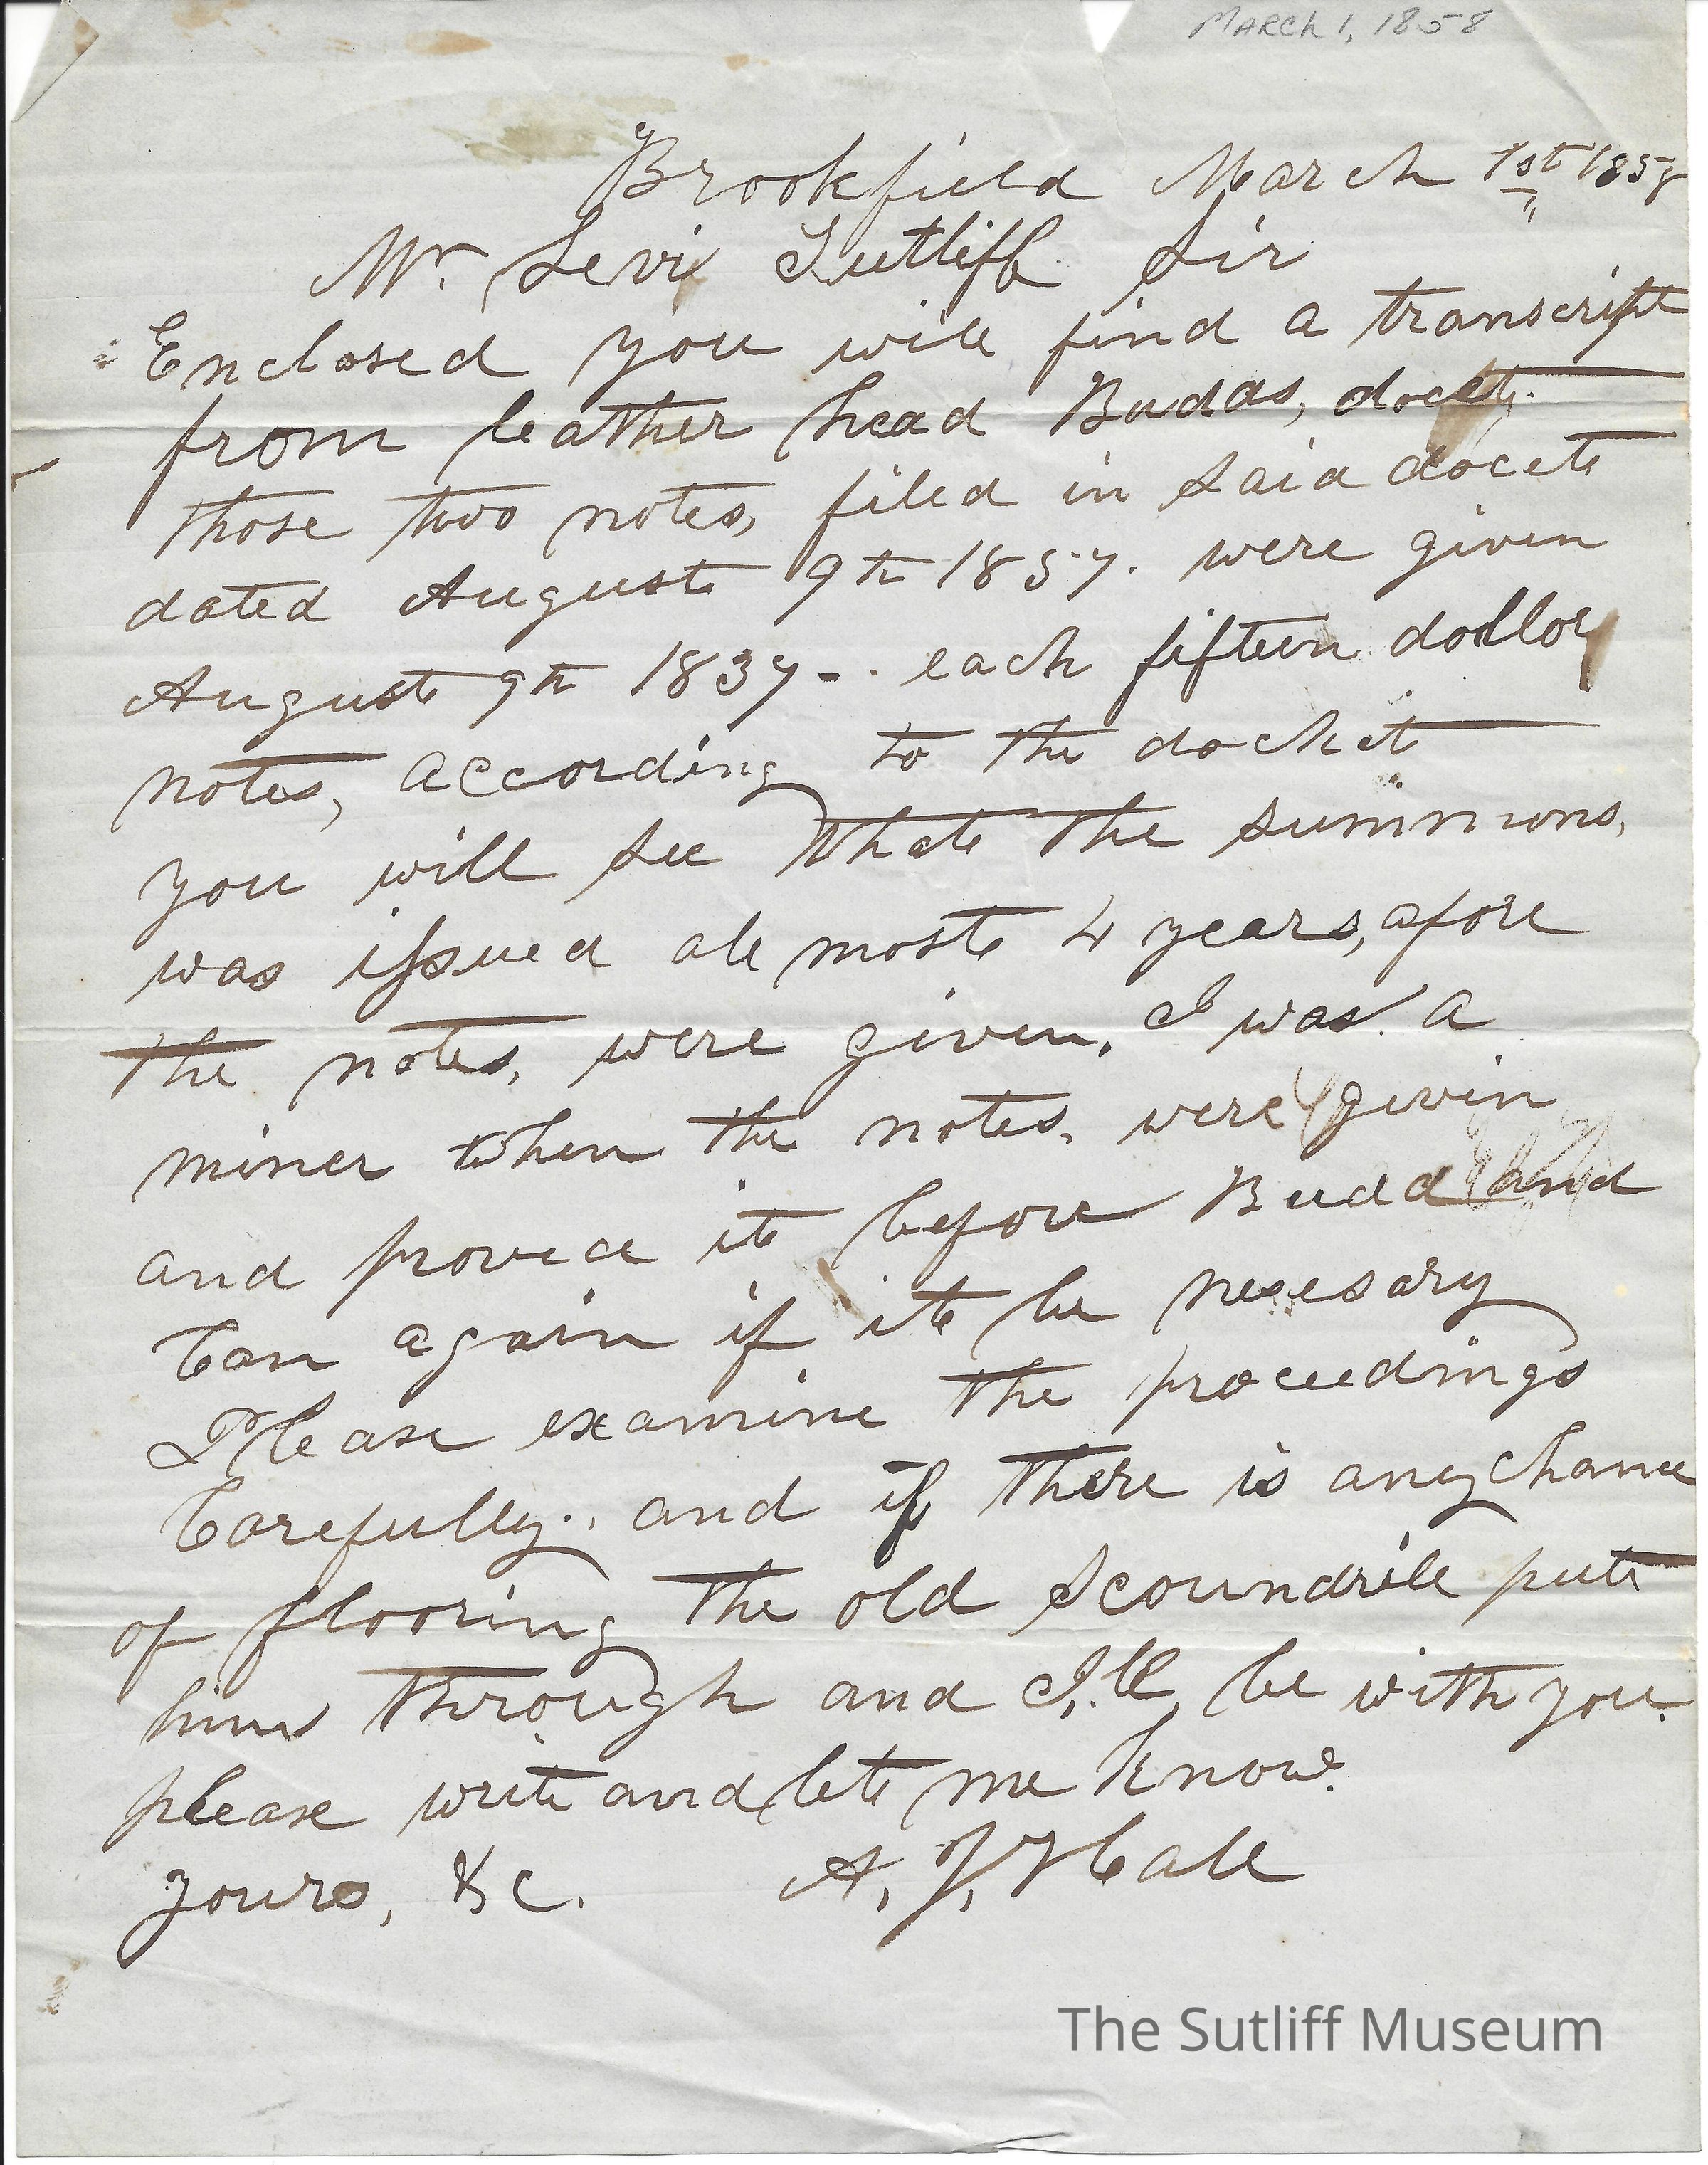 MARCH 1, 1858
Brookfield March 1st 1858
Mr. Levi Sutliff Sir
Enclosed you will find a transcript
from leather head Budds, docet.
those two notes, filed in said docet
dated August 9th 1857. were given
August 9th 1837 - . each fifteen dollor
notes, according to the docket
you will see that the summons,
was issued all most 4 years, afore
the notes, were given. I was a
miner when the notes, were given
and proved it before Budd and
Can again if it be nesesary
Please examine the proceedings
Carefully., and if there is any chance
of flooring the old scoundrill put
him through and I,ll, be with you.
please write and let me know.
yours, &c. A, J, Hall
The Sutliff Museum